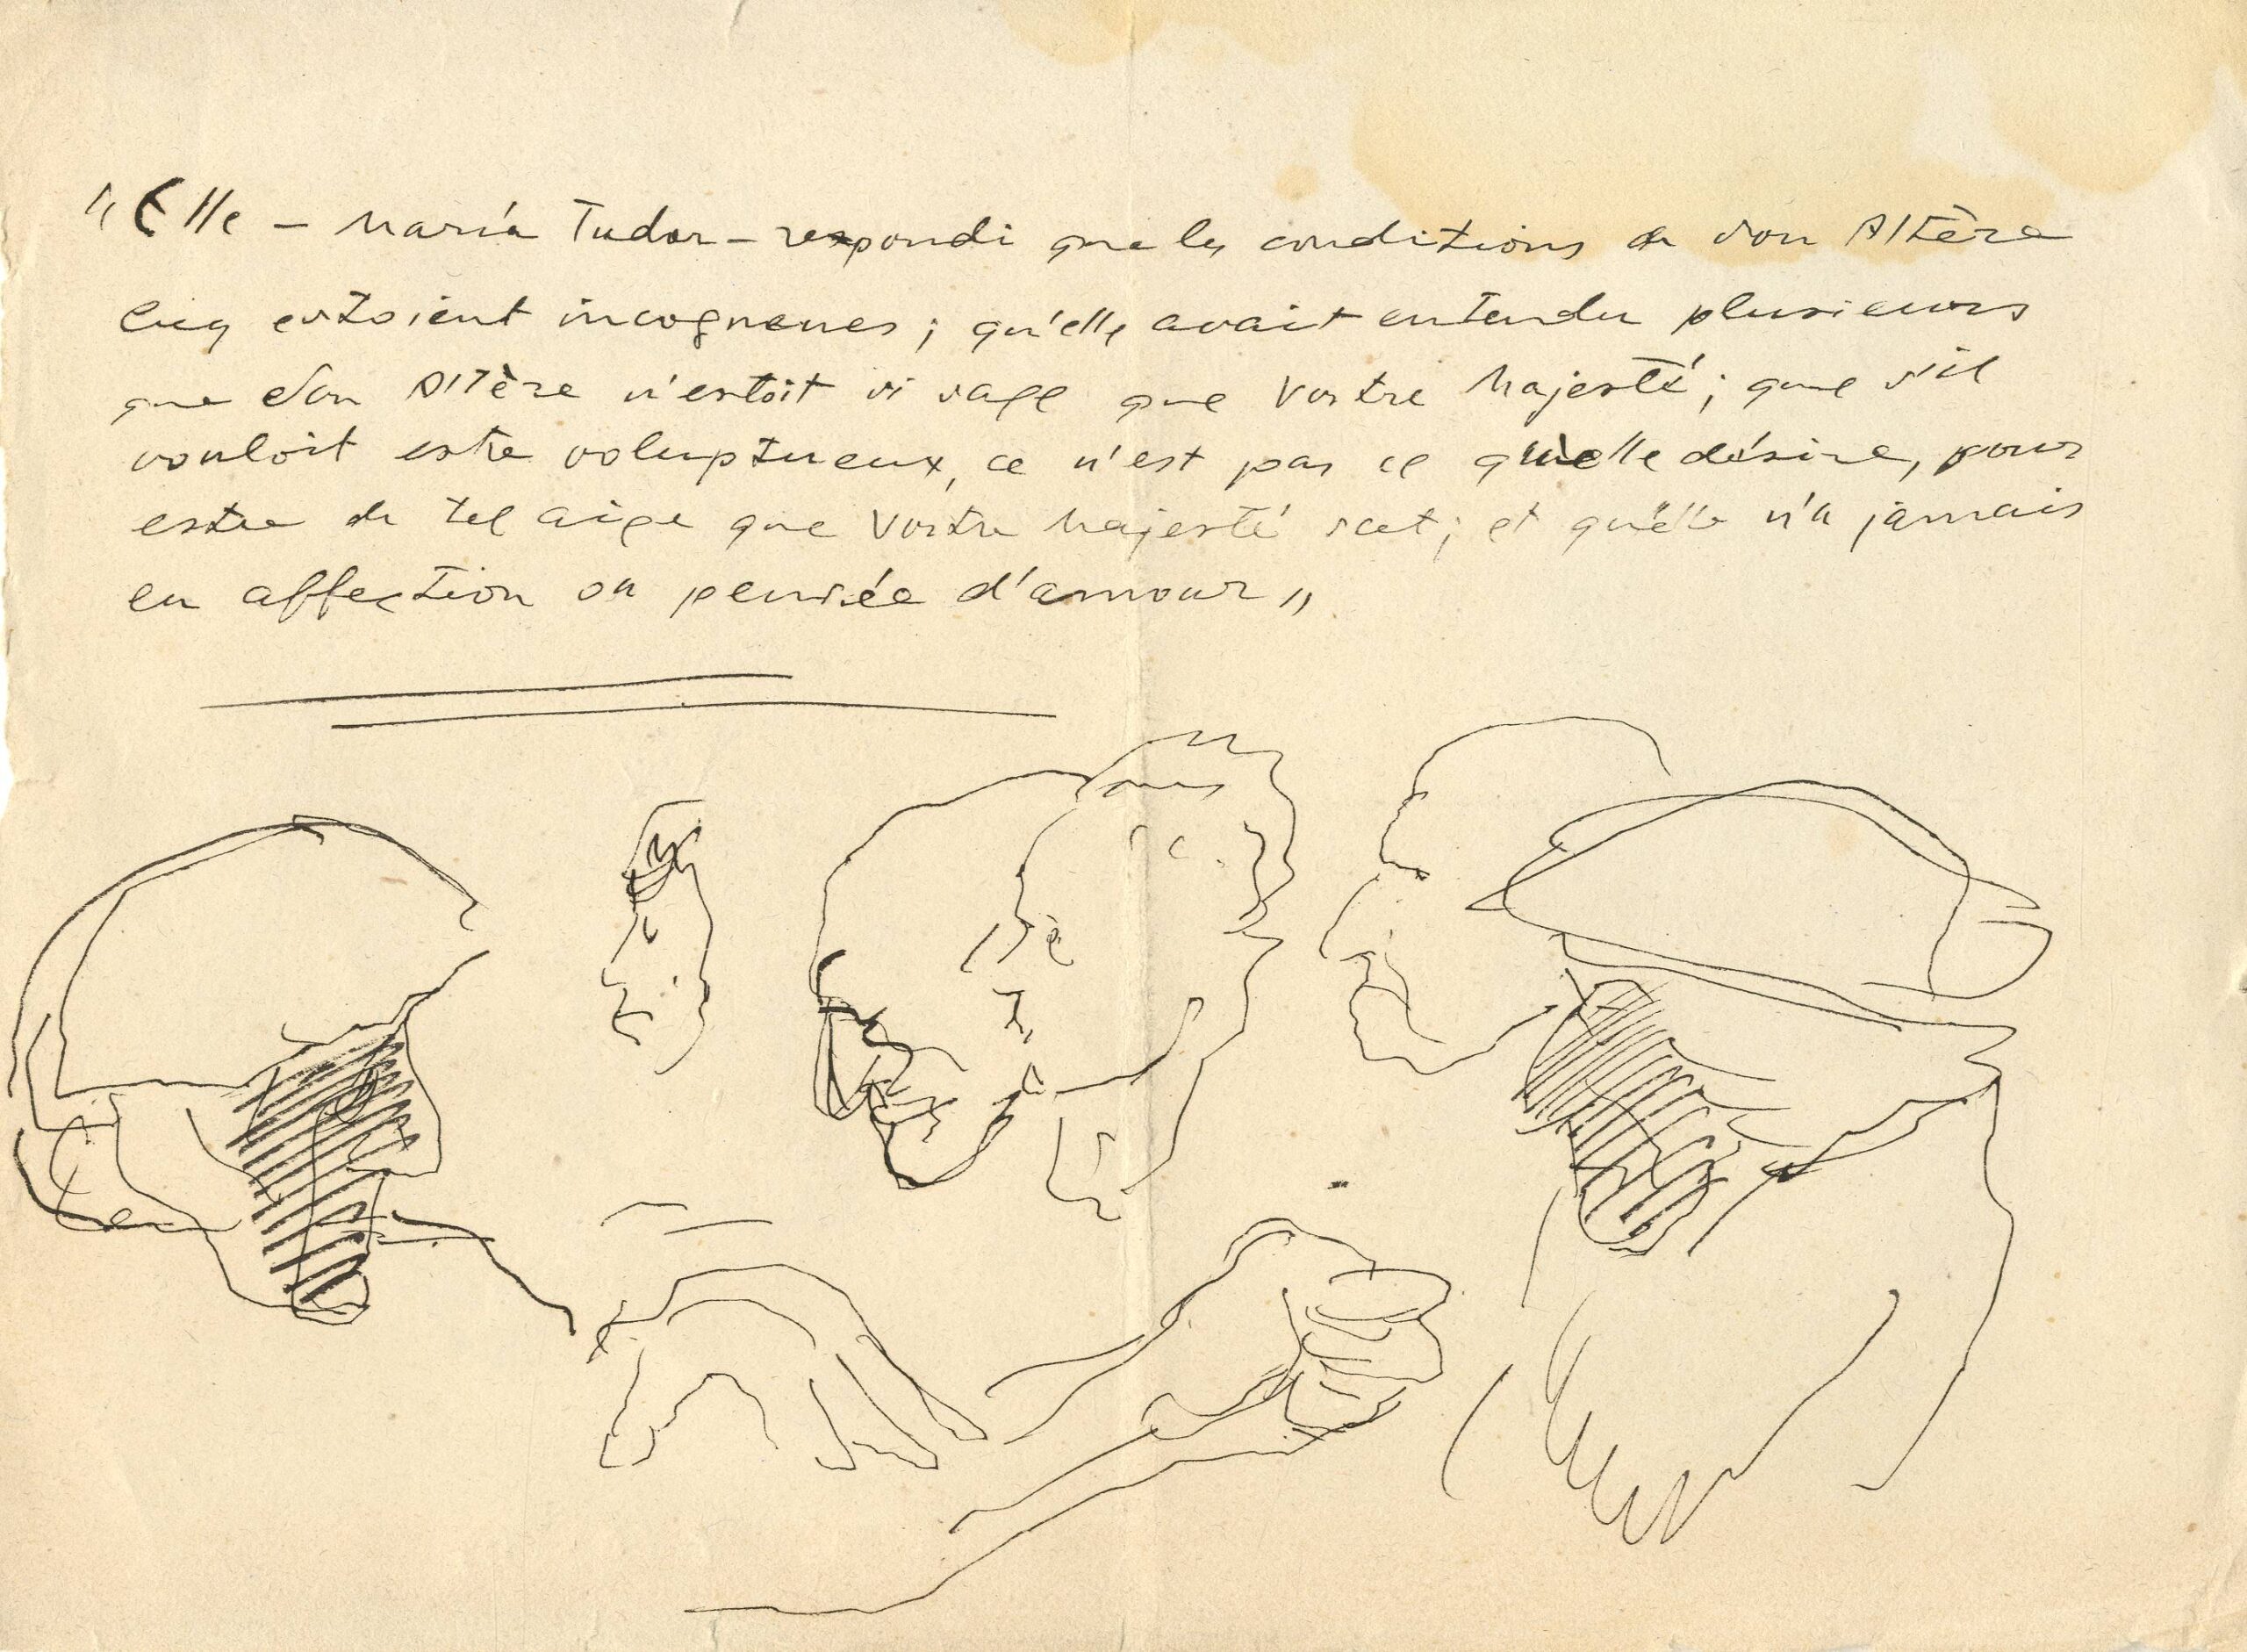 "Elle – María Tudor – respondi que les conditions de son Altère
luy estoient incogneues; qu'elle avait entendu plusieurs
que Son Altère n'estoit si sage que Vostre Majesté; que s'il
vouloit estre voluptueux, ce n'est pas ce qu'elle désire, pour
estre de tel aige que Vostre Majesté scet; et qu'elle n'a jamais
eu affection ou pensée d'amour"